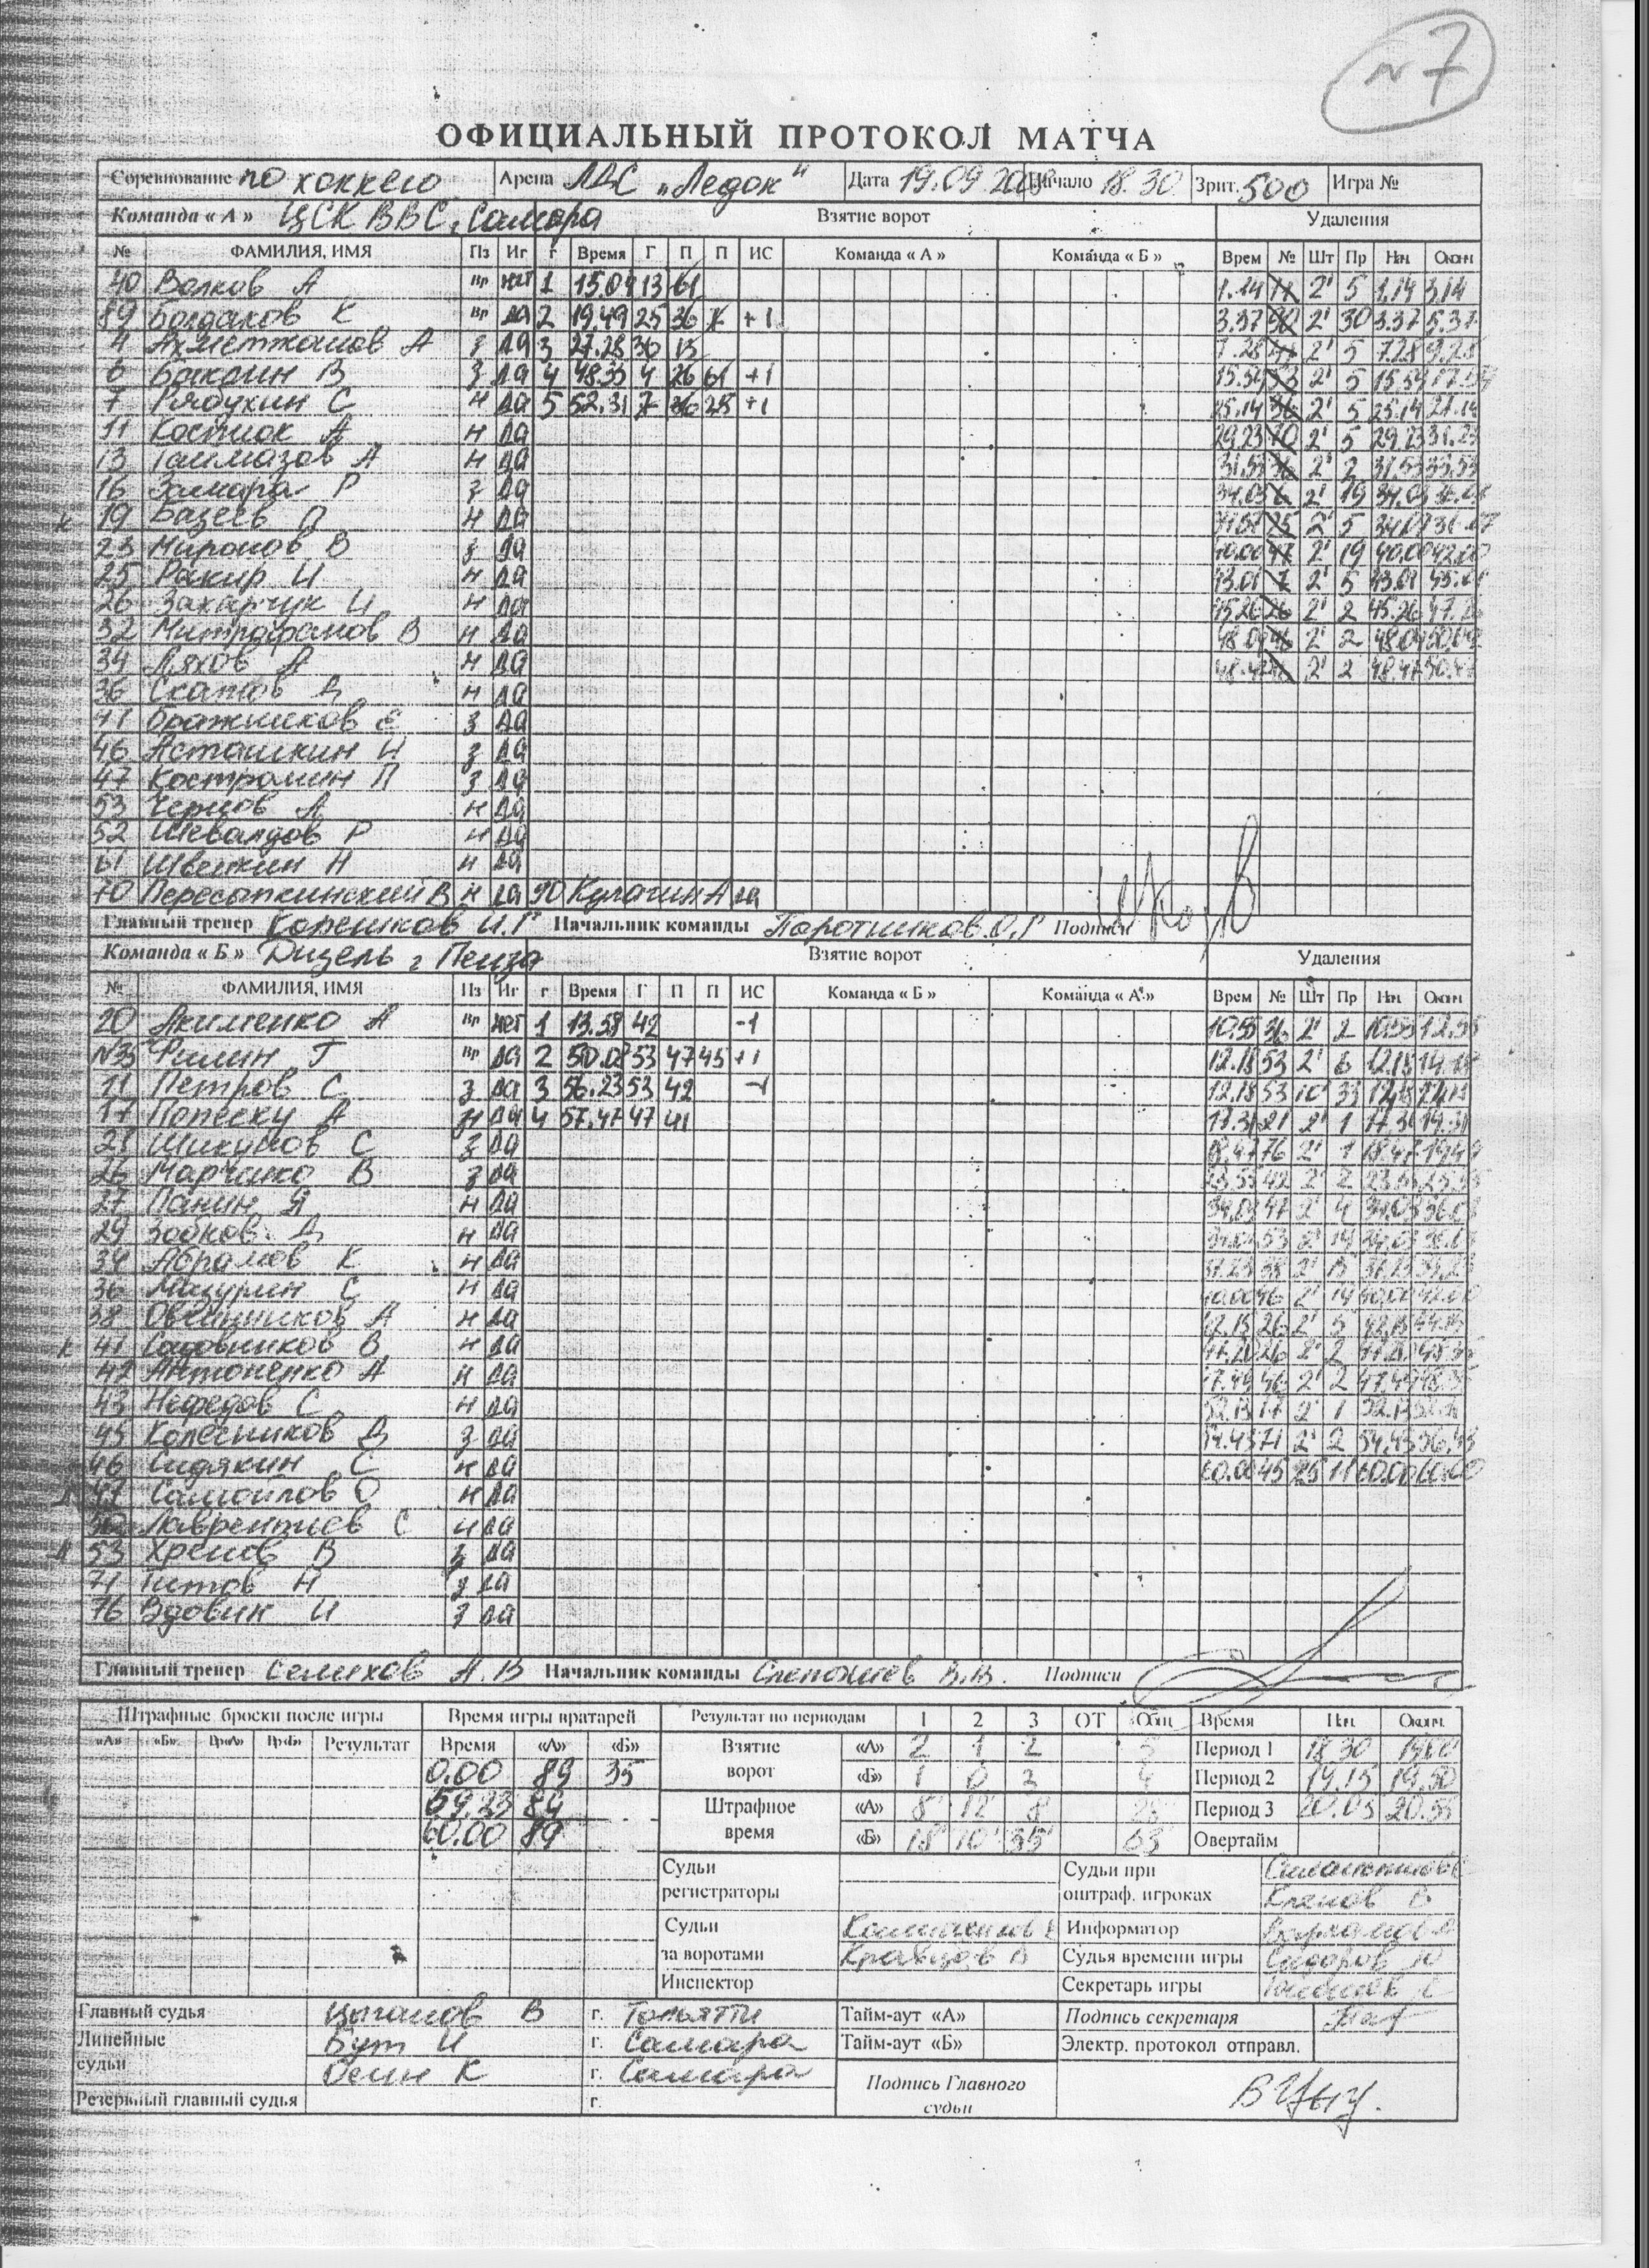 №7
ОФИЦИАЛЬНЫЙ ПРОТОКОЛ МАТЧА
Соревнование по хоккею Арена ЛДС „Ледок" Дата 19.09.20 Начало 18.30 Зрит. 500 Игра №
Команда « А » ЦСК ВВС г. Самара Взятие ворот Удаления
№ ФАМИЛИЯ, ИМЯ Пз Иг г Время Г П П ИС Команда « А » Команда « Б » Врем № Шт Пр Нач. Оконч
40 Волков А Вр нет 1 15.04 13 61 1.14 2' 5 1.14 3.14
89 Болдаков К Вр да 2 19.49 25 36 7 +1 3.37 2' 30 3.37 5.37
4 Ахметжанов А з да 3 27.28 36 13 7.28 2' 5 7.28 9.28
6 Бакаин В з да 4 48.35 4 26 61 +1 15.54 53 2' 5 15.54 17.54
7 Рябухин С н да 5 52.31 7 36 25 +1 25.14 36 2' 5 25.14 27.14
11 Костюк А н да 29.23 70 2' 5 29.23 31.23
13 Таймазов А н да 31.53 36 2' 2 31.53 33.53
16 Замара Р з да 34.03 2' 19 34.03 36.03
к 19 Базеев П н да 25 2' 5 34.07 36.07
23 Миронов В з да 40.00 47 2' 19 40.00 42.00
25 Ракир И н да 43.01 7 2' 5 43.01 45.01
26 Захарчук И н да 45.26 26 2' 2 45.26 47.26
32 Митрофанов В н да 48.09 46 2' 2 48.09 50.09
34 Ляхов А н да 48.47 2' 2 48.47 50.47
36 Скатов Д н да
41 Бражников Е з да
46 Асташкин И з да
47 Костромин П з да
53 Чернов А н да
52 Шевалдов Р н да
61 Швейкин Н н да
70 Пересыпкинский В н да 90 Кулагин А да
Главный тренер Корешков И.Г Начальник команды Поротников О.Г Подписи
Команда « Б » Дизель г Пенза Взятие ворот Удаления
№ ФАМИЛИЯ, ИМЯ Пз Иг г Время Г П П ИС Команда « Б » Команда « А » Врем № Шт Пр Нач. Оконч
20 Акименко А Вр нет 1 13.58 42 -1 10.55 36 2' 2 10.55 12.55
35 Филин Г Вр да 2 50.08 53 47 45 +1 12.18 53 2' 6 12.18 14.18
11 Петров С з да 3 56.23 53 42 -1 12.18 53 10' 33 12.18
17 Попеску А н да 4 57.47 47 41 17.31 21 2' 1 17.31 19.31
21 Шикунов С з да 18.47 76 2' 1 18.47 19.49
26 Марченко В з да 23.55 42 2' 2 23.55 25.55
27 Панин Я н да 34.03 47 2' 4 34.03 36.03
29 Зобков Д н да 34.03 53 2' 14 34.03 36.03
34 Абрамов К н да 37.23 38 2' 37.23 39.23
36 Мазурин С н да 40.00 46 2' 19 40.00 42.00
38 Овчинников А н да 42.15 26 2' 5 42.15 44.15
к 41 Садовников В н да 26 2' 2
42 Антоненко А н да 47.49 46 2' 2 47.49
43 Нефедов С н да 52.13 17 2' 1 52.13
45 Колесников Д з да 54.43 71 2' 2 54.43 56.43
46 Сидякин С н да 60.00 45 25 11 60.00 60.00
47 Самойлов О н да
Лаврентьев С н да
53 Хренов В з да
71 Титов Н з да
76 Вдовин И з да
Главный тренер Семихов А.В Начальник команды Слепошев В.В. Подписи
Штрафные броски после игры Время игры вратарей Результат по периодам 1 2 3 ОТ Общ Время Нач. Оконч.
«А» «Б» Вр«А» Вр«Б» Результат Время «А» «Б» Взятие ворот «А» 2 1 2 5 Период 1 18.30
0.00 89 35 «Б» 1 0 3 4 Период 2 19.15 19.50
59.23 89 Штрафное время «А» 8' 12' 8' 28 Период 3 20.05 20.55
60.00 89 «Б» 18' 10' 35' 63 Овертайм
Судьи регистраторы Судьи при оштраф. игроках
Кленов В
Судьи за воротами Информатор
Кравцов В Судья времени игры Сидоров
Инспектор Секретарь игры
Главный судья Цыганов В г. Тольятти Тайм-аут «А» Подпись секретаря
Линейные судьи Бут И г. Самара Тайм-аут «Б» Электр. протокол отправл.
Осин К г. Самара Подпись Главного судьи
Резервный главный судья г.